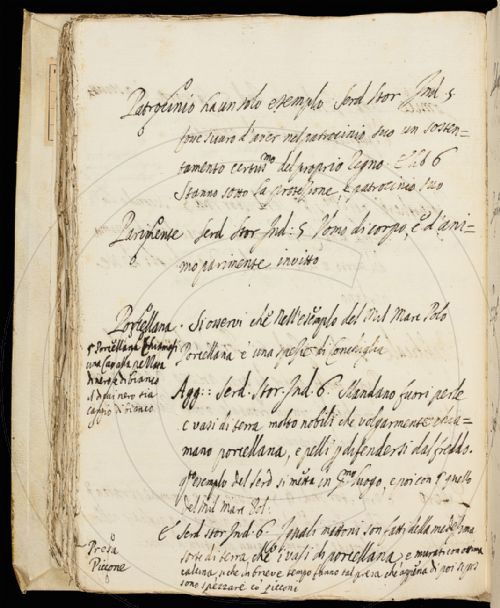 Patrocinio ha un solo esempio Serd Stor Ind. 5
d'aver nel patrocinio suo un sosten=
tamento certiss.mo del proprio Regno. E lib 6
Stanno sotto la protessione, e patrocinio suo
Parimente Serd Stor Ind: 5 Uomo di corpo, e d'ani=
mo parimente invitto
Porcellana. Si osservi che nell'esemplo del Mil Mar. Polo
Porcellana è una spezie di Conchiglia
Agg:: Serd. Stor. Ind. 6. Mandano fuori perle
e vasi di terra molto nobili che volgarmente chia=
mano porcellana, e pelli p difendersi dal freddo.
esemplo del Serd si metta in p.mo luogo, e poi con quello
del Mil Mar. Pol.
E Serd Stor Ind. 6. I quali mattoni son fatti della medesima
sorte di terra, che i vasi di porcellana, e murati con
calcina, che in breve tempo fanno tal presa che
sono spezzare co' picconi
§ Porcellana
una Cavalla
di bianco
di nero
di bianco
Presa
Piccone